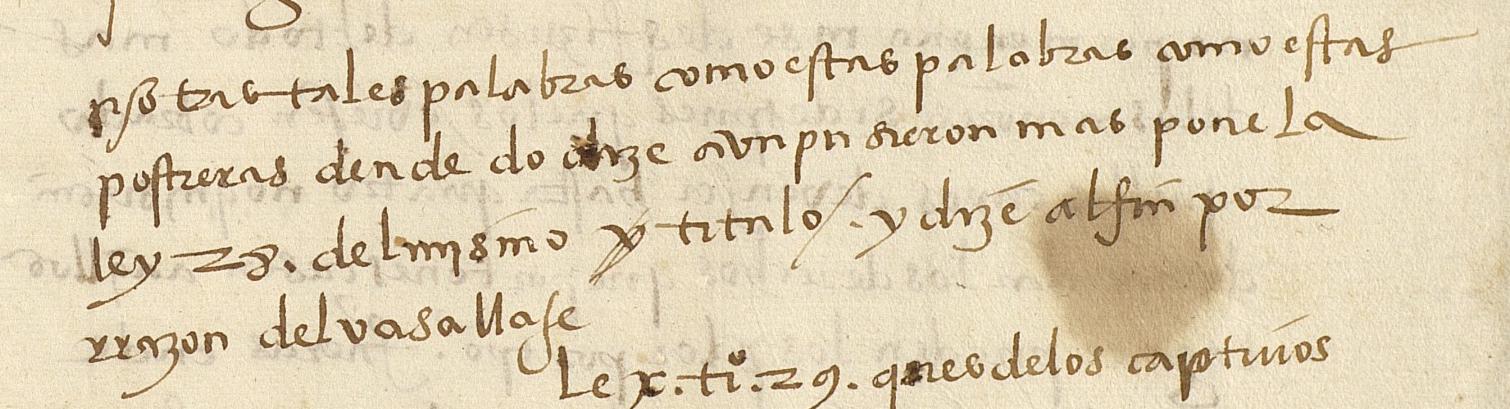 tales palabras como estas palabras como estas
postreras dende do dize avn pusieron mas pone la
ley 28. del mismo titulo. y dizē al fin por
rrazon del vasallase
Lex. tiº. 29. ques de los captiuos